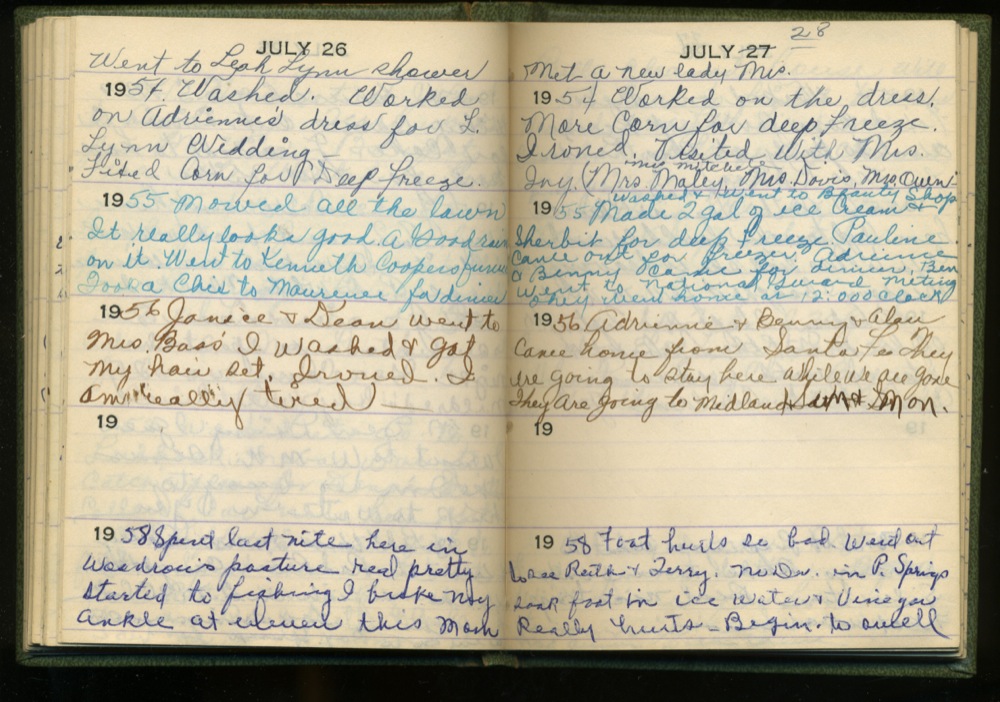 JULY 26
Went to Leah Lynn shower
1954. Washed. Worked
on Adrienne's dress for L.
Lynn Wedding -
Fixed Corn for Deep freeze.
1955 Mowed all the lawn
It really looks good. A Good rain
on it. Went to Kenneth Coopers
Took a Chic to Maurence for dinner
1956 Janice & Dean went to
Mrs. Bass' I washed & got
my hair set. Ironed. I
am "really" tired -
19
1958 Spent last nite here in
Woodrow's pasture real pretty
started to fishing I broke my
ankle at eleven this morn
JULY 27 28
Met a new lady Mrs.
1954 Worked on the dress.
More Corn for deep freeze.
Ironed. Visited with Mrs.
Mrs Mitchell
Ivy (Mrs. Maley, Mrs. Davis, Mrs Owen
Washed & Went to Beauty Shop
1955 Made 2 gal of ice Cream &
Sherbit for deep freeze. Pauline
Came out for freezer. Adrienne
& Benny came for dinner, Ben
went to National Guard meting
They went home at 12:00 oclock
1956 Adrienne & Benny & Alan
Came home from Santa Fe They
are going to stay here while we are gone
They are going to Midland Sun & Mon.
19
1958 Foot hurts so bad Went out
to see Ruth & Terry. No Dr. in P. Springs
soak foot in ice water & Vinegar
Really hurts - Begin. to swell